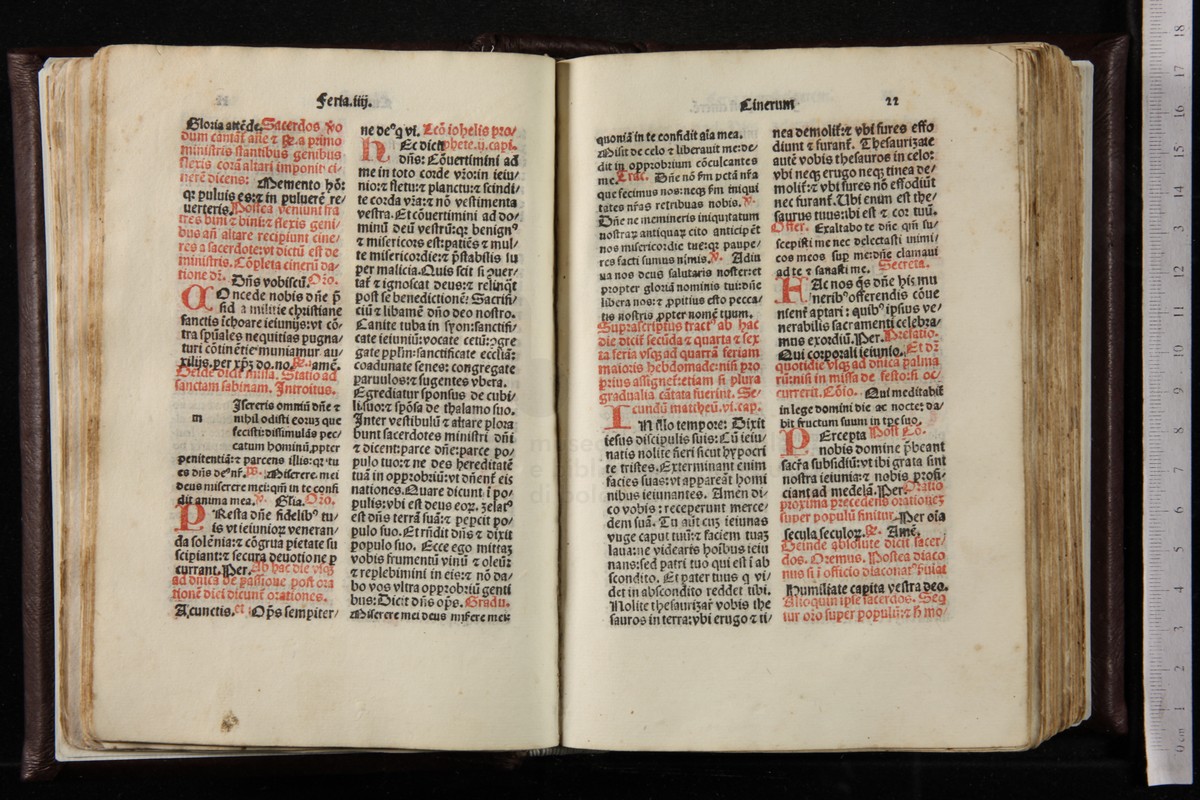 Feria.iiij.
Gloria attēde. Sacerdos ꝟo
dum cantat̄ añe ⁊ ℟. a primo
ministris stantibus genibus
flexis corā altari imponit ci-
nerē dicens: Memento hō:
q: puluis es: ⁊ in puluerē re-
uerteris. Postea veniunt fra
tres bini ⁊ bini: ⁊ flexis geni-
bus añ altare recipiunt cine-
res a sacerdote: vt dictū est de
ministris. Cōpleta cinerū da-
tione dꝛ. Dn̄s vobiscū. Oꝛo.
COncede nobis dn̄e p̄
sid a militie christiane
sanctis ichoare ieiunijs: vt cō-
tra spūales nequitias pugna-
turi cōtinētie muniamur au-
xilijs. per xp̄ꝫ do. no. ℟. amē.
Deide dicit̄ missa. Statio ad
sanctam sabinam. Introitus.
Isereris omniū dn̄e ⁊
nihil odisti eoꝛuꝫ que
fecisti: dissimulās pec-
catum hominū ꝓpter
penitentiā: ⁊ parcens illis: qꝛ tu
es dn̄s deꝰ nr̄. ps. Miserere mei
deus miserere mei: qm̄ in te confi
dit anima mea. ℣. Glīa. Oꝛo.
PResta dn̄e fidelibꝰ tu-
is vt ieiunioꝝ veneran-
da solēnia: ⁊ cōgrua pietate su
scipiant: ⁊ secura deuotione p
currant. Per. Ab hac die vsqꝫ
ad dn̄ica de passione post oꝛa
tionē diei dicunt̄ oꝛationes.
A cunctis. et Op̄s sempiter-
ne deꝰ q vi. Lcō iohelis pꝛo-
phete. ij. capi.
HEc dicit
dn̄s: Cōuertimini ad
me in toto coꝛde vr̄o: in ieiu-
nio: ⁊ fletu: ⁊ planctu: ⁊ scindi-
te coꝛda vr̄a: ⁊ nō vestimenta
vestra. Et cōuertimini ad do-
minū deū vestrū: qꝛ benignꝰ
⁊ misericoꝛs est: patiēs ⁊ mul-
te misericoꝛdie: ⁊ p̄stabilis su
per malicia. Quis scit si ꝯuer-
tat̄ ⁊ ignoscat deus: ⁊ relinq̄t
post se benedictionē: Sacrifi-
ciū ⁊ libamē dn̄o deo nostro.
Canite tuba in syon: sanctifi-
cate ieiuniū: vocate cetū: ꝯgre
gate ppl̄m: sanctificate eccl̄iā:
coadunate senes: congregate
paruulos: ⁊ sugentes vbera.
Egrediatur sponsus de cubi-
li suo: ⁊ spōsa de thalamo suo.
Inter vestibulū ⁊ altare ploꝛa
bunt sacerdotes ministri dn̄i
⁊ dicent: parce dn̄e: parce po-
pulo tuo: ⁊ ne des hereditatē
tuā in opprobꝛiū: vt dn̄ent̄ eis
nationes. Quare dicunt ī po-
pulis: vbi est deus eoꝝ. ʒelatꝰ
est dn̄s terrā suā: ⁊ pepcit po-
pulo suo. Et rn̄dit dn̄s ⁊ dixit
populo suo. Ecce ego mittaꝫ
vobis frumentū vinū ⁊ oleū:
⁊ replebimini in eis: ⁊ nō da-
bo vos vltra oppꝛobꝛiū genti
bus: Dicit dn̄s op̄s. Gradu.
Miserere mei deus mis̄ere mei:
Cinerum
22
quoniā in te confidit aīa mea.
Misit de celo ⁊ liberauit me: de-
dit in oppꝛobꝛium cōculcantes
me. Trac. Dn̄e nō s̄m pctā nr̄a
que fecimus nos: neqꝫ s̄m iniqui
tates nr̄as retribuas nobis. ℣.
Dn̄e ne memineris iniquitatum
nostraꝝ antiquaꝝ cito anticipēt
nos misericoꝛdie tue: qꝛ paupe-
res facti sumus nimis. ℣. Adiu
ua nos deus salutaris noster: et
pꝛopter gloꝛiā nominis tui: dn̄e
libera nos: ⁊ ꝓpitius esto pecca-
tis nostris ꝓpter nomē tuum.
Supꝛascriptus tract̄ ab hac
die dicit̄ secūda ⁊ quarta ⁊ sex
ta feria vsqꝫ ad quartā feriam
maioꝛis hebdomade: nisi pꝛo
pꝛius assignet̄: etiam si plura
gradualia cātata fuerint. Se-
cundū mattheū. vi. cap.
IN illo tempoꝛe: Dixit
iesus discipulis suis: Cū ieiu-
natis nolite fieri sicut hypocri
te tristes. Exterminant enim
facies suas: vt appareāt homi
nibus ieiunantes. Amen di-
co vobis: receperunt merce-
dem suā. Tu aūt cuꝫ ieiunas
vnge caput tuū: ⁊ faciem tuaꝫ
laua: ne videaris hoībus ieiu
nans: sed patri tuo qui est ī ab
scondito. Et pater tuus q vi-
det in abscondito reddet tibi.
Nolite thesaurizar̄ vobis the
sauros in terra: vbi erugo ⁊ ti-
nea demolit̄: ⁊ vbi fures effo
diunt ⁊ furant̄. Thesaurizate
autē vobis thesauros in celo:
vbi neqꝫ erugo neqꝫ tinea de-
molit̄: ⁊ vbi fures nō effodiūt
nec furant̄. Ubi enim est the-
saurus tuus: ibi est ⁊ coꝛ tuū.
Offer. Exaltabo te dn̄e qm̄ su-
scepisti me nec delectasti inimi
cos meos sup me: dn̄e clamaui
ad te ⁊ sanasti me. Secreta.
FAc nos q̄s dn̄e his mu
neribꝰ offerendis cōue
nient̄ aptari: quibꝰ ipsius ve-
nerabilis sacramenti celebꝛa-
mus exoꝛdiū. Per. Prefatio.
Qui coꝛpoꝛali ieiunio. Et dꝛ
quotidie vsqꝫ ad dn̄ica palma
rū: nisi in missa de festo: si oc-
currerit. Cōio. Qui meditabit̄
in lege domini die ac nocte: da-
bit fructum suum in tp̄e suo.
PErcepta Post Co.
nobis domine p̄beant
sacr̄a subsidiū: vt tibi grata sint
nostra ieiunia: ⁊ nobis pꝛofi-
ciant ad medelā. Per. Oꝛatio
pꝛoxima pꝛecedens oꝛationeꝫ
super populū finitur. Per oīa
secula seculoꝝ. ℟. Amē.
Deinde absolute dicit sacer-
dos. Oꝛemus. Postea diaco
nus si ī officio diaconat̄ ẜuiat
Humiliate capita vestra deo.
Alioquin ipse sacerdos. Seq̄
tur oꝛo super populū: ⁊ h̄ mo-